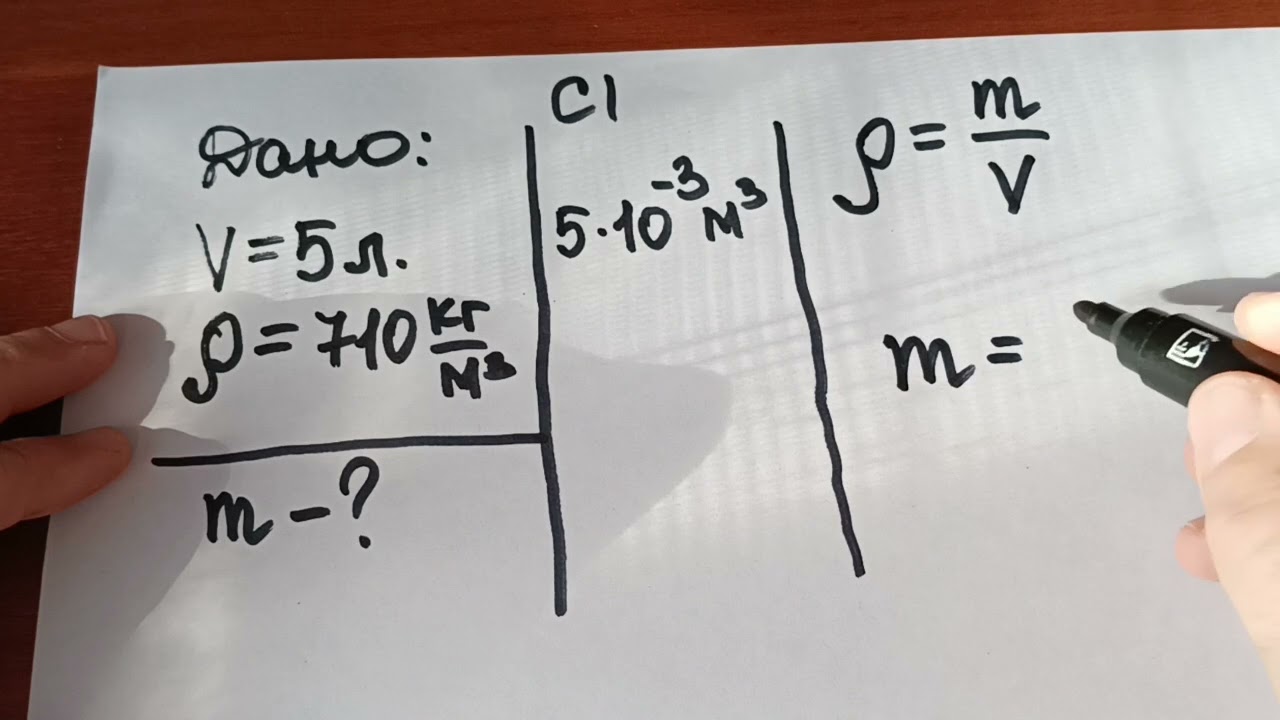 Дано:
V = 5 л.
ρ = 710 кг/м³
m - ?
СІ
5·10⁻³ м³
ρ = m/V
m =